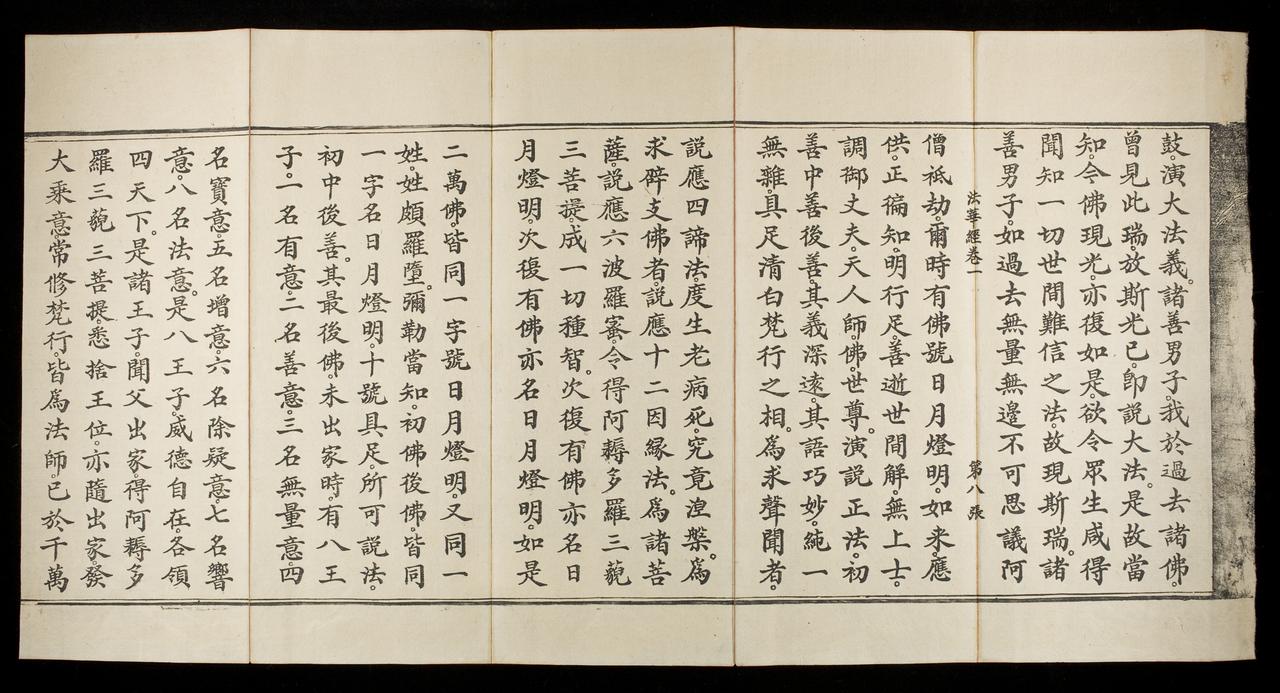 鼓。演大法義。諸善男子。我於過去諸佛。
曾見此瑞。放斯光已。卽說大法。是故當
知。今佛現光。亦復如是。欲令眾生咸得
聞知一切世間難信之法。故現斯瑞。諸
善男子。如過去無量無邊不可思議阿
法華經卷一 第八張
僧祇劫。爾時有佛號日月燈明。如来。應
供。正徧知。明行足。善逝世間解。無上士。
調御丈夫天人師。佛。世尊。演說正法。初
善中善後善。其義深遠。其語巧妙。純一
無雜。具足清白梵行之相。為求聲聞者。
說應四諦法。度生老病死。究竟涅槃。為
求辟支佛者。說應十二因緣法。為諸菩
薩。說應六波羅蜜。令得阿耨多羅三藐
三菩提。成一切種智。次復有佛亦名日
月燈明。次復有佛亦名日月燈明。如是
二萬佛。皆同一字號日月燈明。又同一
姓。姓頗羅墮。彌勒當知。初佛後佛。皆同
一字名日月燈明。十號具足。所可說法。
初中後善。其最後佛。未出家時。有八王
子。一名有意。二名善意。三名無量意。四
名寶意。五名增意。六名除疑意。七名響
意。八名法意。是八王子。威德自在。各領
四天下。是諸王子。聞父出家。得阿耨多
羅三藐三菩提。悉捨王位。亦隨出家。發
大乘意。常修梵行。皆為法師。已於千萬